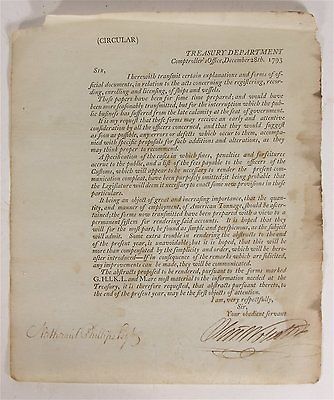 (CIRCULAR)
TREASURY DEPARTMENT
Comptroller's Office, December 28th, 1793
SIR,
I herewith transmit certain explanations and forms of of-
ficial documents, in relation to the acts concerning the registering, recor-
ding, enrolling and licensing, of ships and vessels.
These papers have been for some time prepared; and would have
been more seasonably transmitted, but for the interruption which the pu-
blic business has suffered from the late calamity at the seat of government.
It is my request that these forms may receive an early and attentive
consideration by all the officers concerned, and that they would suggest
as soon as possible, any errors or defects which occur to them, accompa-
nied with specific proposals for such additions and alterations, as they
may think proper to recommend.
A specification of the cases in which fees, penalties and forfeitures
accrue to the public, and a list of the fees payable to the officers of the
Customs, which will appear to be necessary to render the present commu-
nication compleat, have been purposely omitted; it being probable that
the Legislature will deem it necessary to enact some new provisions in these
particulars.
It being an object of great and increasing importance, that the quan-
tity, and manner of employment, of American Tonnage, should be ascer-
tained; the forms now transmitted have been prepared with a view to a
permanent system for rendering said accounts. It is hoped that they
will for the most part, be found as simple and perspicuous, as the subject
will admit. Some extra trouble in rendering the abstracts to the end
of the present year, is unavoidable; but it is hoped, that this will be more
than compensated by the simplicity and order, which will be here-
after introduced—If in consequence of the remarks which are solicited,
any improvements can be made, they will be communicated.
The abstracts proposed to be rendered, pursuant to the forms marked
G.H.I.K.L. and M are most material to the information needed at the
Treasury, it is therefore requested, that abstracts pursuant thereto, to
the end of the present year, may be the first objects of attention.
I am, very respectfully,
Sir,
Your obedient servant
Nathaniel Phillips Esq